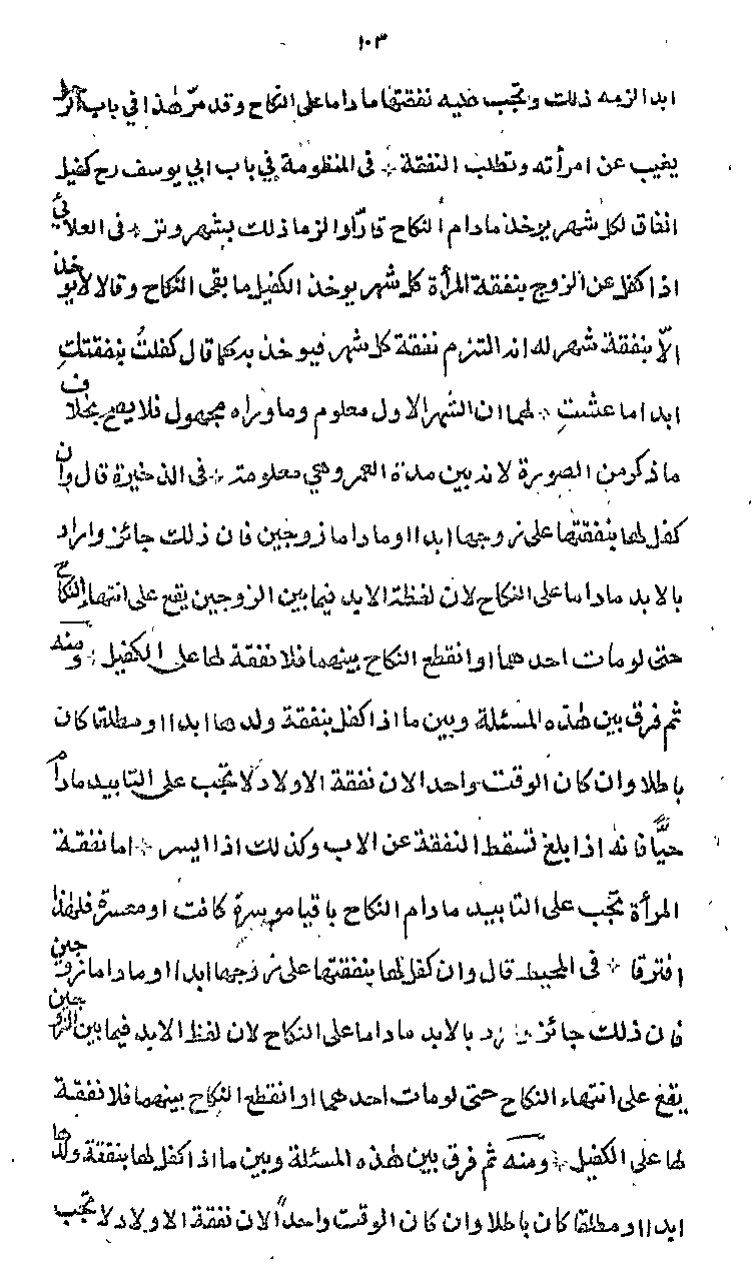 ١٠٣
ابدا لزمه ذلك وتجب عليه نفقتها ماداما على النكاح وقد مرّ هٰذا في باب الرجل
يغيب عن امرأته وتطلب النفقة * فى المنظومة في باب ابي يوسف رح كفيل
انفاق لكل شهر يوخذ مادام النكاح قارّا والزما ذلك بشهر ونز * فى العلائي
اذا كفل عن الزوج بنفقة المرأة كل شهر يوخذ الكفيل ما بقى النكاح وقالا لا يوخذ
الاّ بنفقة شهر له انه التزم نفقة كل شهر فيوخذ به كما قال كفلتُ بنفقتكِ
ابدا ما عشتِ * لهما ان الشهر الاول معلوم وما وراه مجهول فلا يصح بخلاف
ما ذكر من الصورة لانه بين مدة العمر وهي معلومة * فى الذخيرة قال وان
كفل لها بنفقتها على زوجها ابدا او ماداما زوجين فان ذلك جائز واراد
بالابد ماداما على النكاح لان لفظة الابد فيما بين الزوجين يقع على انتهاء النكاح
حتى لو مات احدهما او انقطع النكاح بينهما فلا نفقة لها على الكفيل * ومنه
ثم فرق بين هٰذه المسئلة وبين ما اذا كفل بنفقة ولدها ابدا او مطلقا كان
باطلا وان كان الوقت واحدا لان نفقة الاولاد لا تجب على التابيد مادام
حيًّا فانه اذا بلغ تسقط النفقة عن الاب وكذلك اذا ايسر * اما نفقة
المرأة تجب على التابيد مادام النكاح باقيا موسرة كانت او معسرة فلهٰذا
افترقا * فى المحيط قال وان كفل لها بنفقتها على زوجها ابدا او ماداما زوجين
فان ذلك جائز ويريد بالابد ماداما على النكاح لان لفظ الابد فيما بين الزوجين
يقع على انتهاء النكاح حتى لو مات احدهما او انقطع النكاح بينهما فلا نفقة
لها على الكفيل * ومنه ثم فرق بين هٰذه المسئلة وبين ما اذا كفل لها بنفقة ولدها
ابدا او مطلقا كان باطلا وان كان الوقت واحداً لان نفقة الاولاد لا تجب